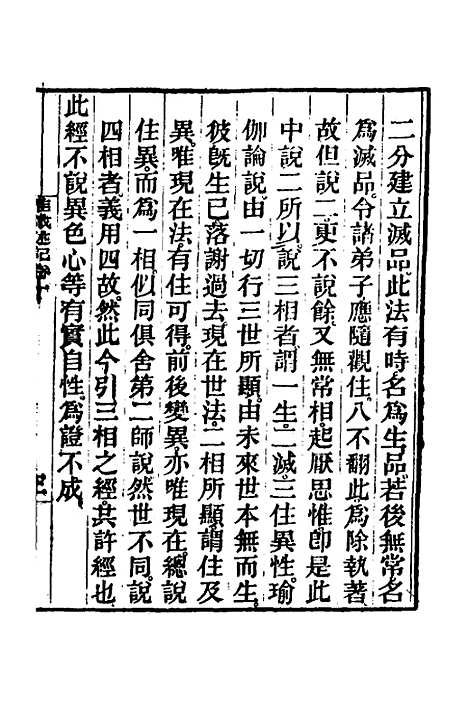 二分建立滅品。此法有時名爲生品。若後無常名
爲滅品。令諸弟子應隨觀住。八不翻此。爲除執著
故但說二。更不說餘。又無常相。起厭思惟。卽是此
中說二所以。說三相者。謂一生。二滅。三住異性。瑜
伽論說。由一切行三世所顯。由未來世本無而生。
彼旣生已落謝過去。現在世法。二相所顯。謂住及
異。唯現在法有住可得。前後變異。亦唯現在。總說
住異。而爲一相。似同俱舍第二師說。然世不同。說
四相者。義用四故。然此今引三相之經。共許經也
此經不說異色心等有實自性。爲證不成